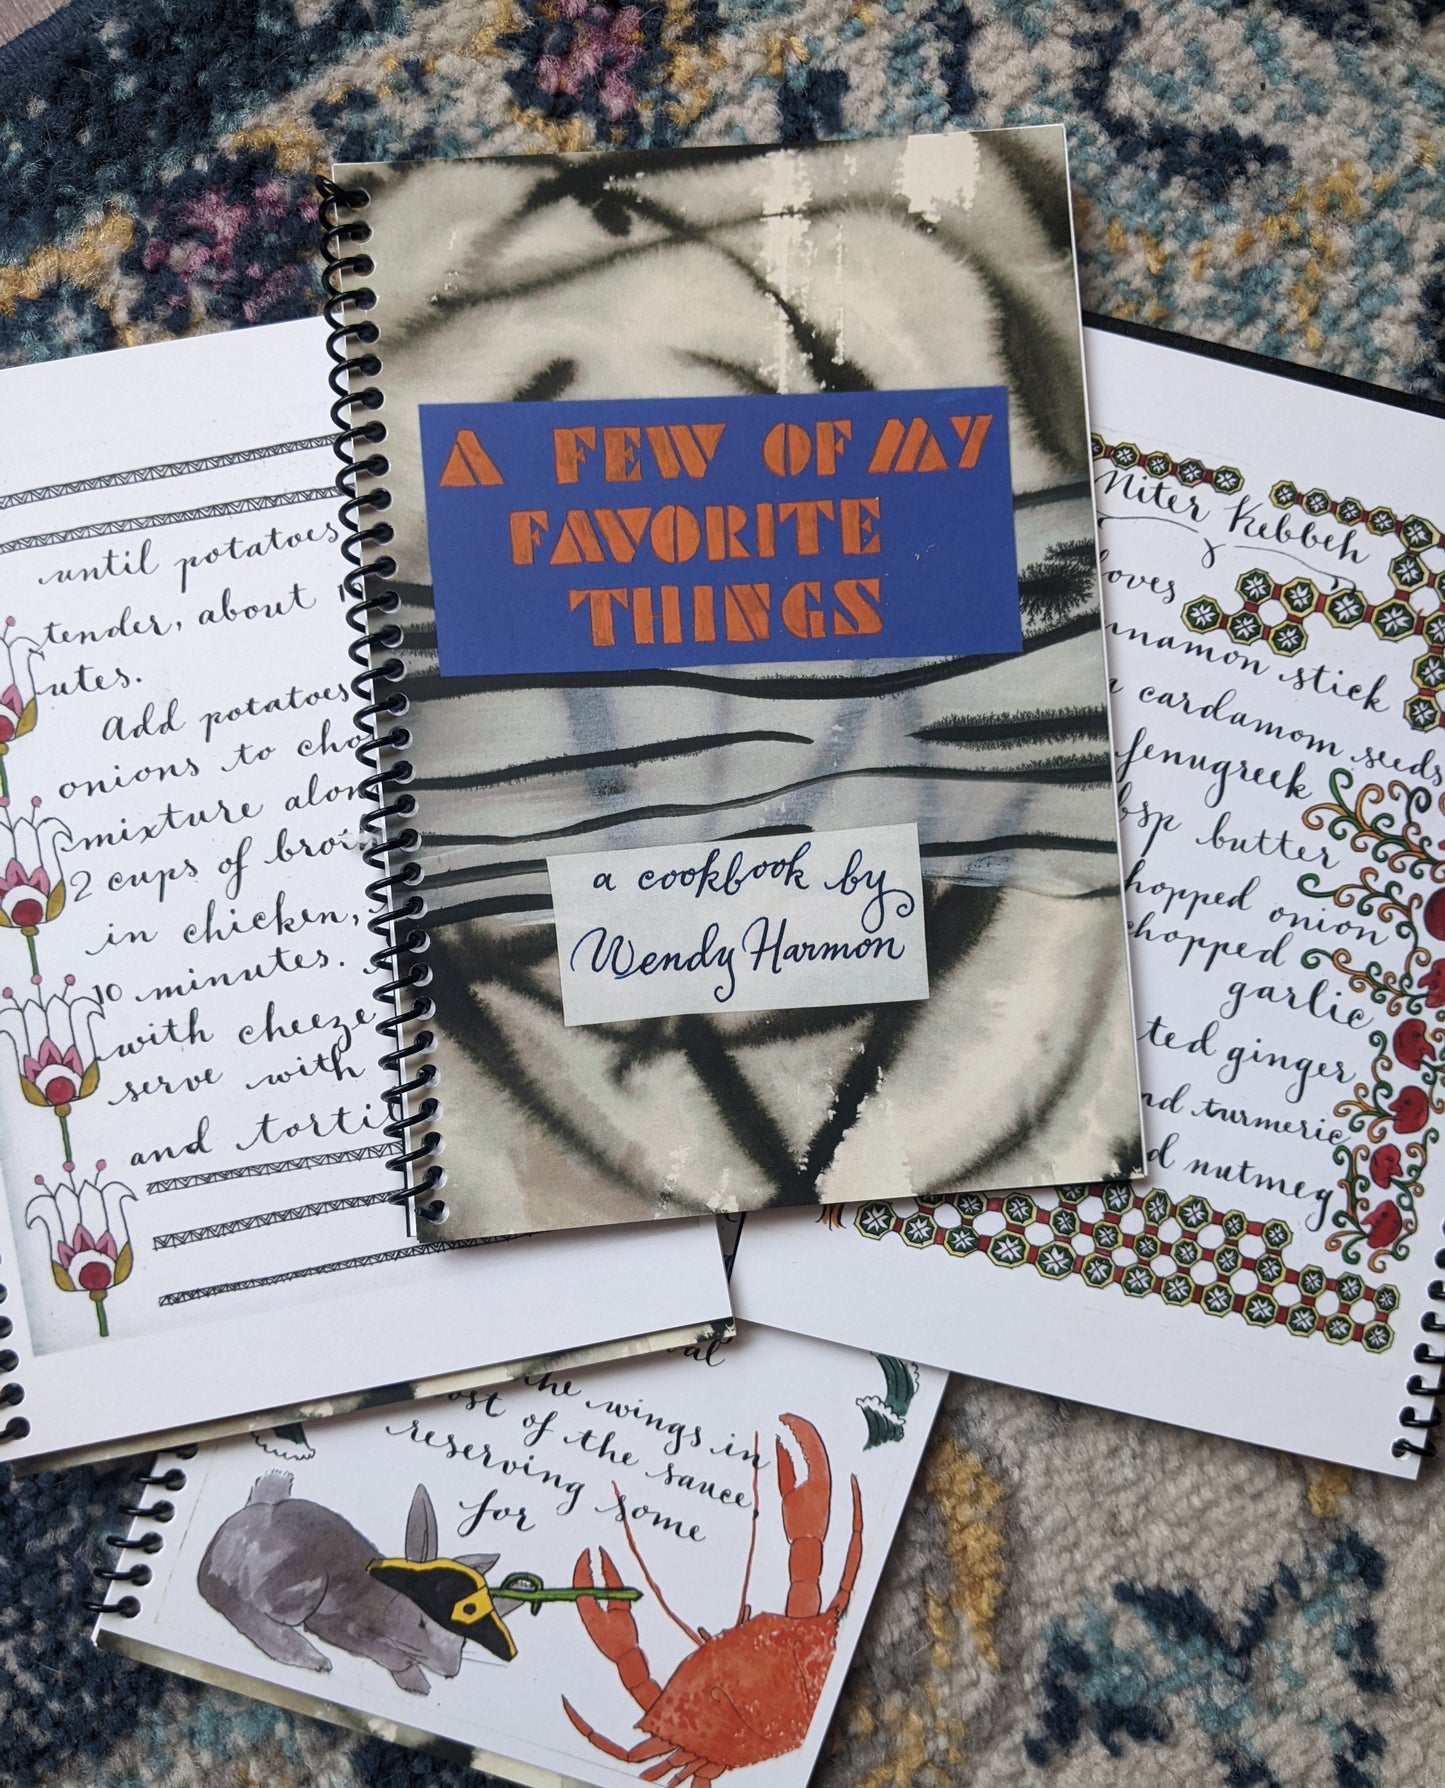 A FEW OF MY
FAVORITE
THINGS
a cookbook by
Wendy Harmon
until potatoes
tender, about
utes.
Add potatoes
onions to
mixture
2 cups of
in chicken,
10 minutes.
with cheeze
serve with
and
Niter Kebbeh
stick
cardamom seeds
fenugreek
butter
onion
chopped
garlic
ginger
turmeric
nutmeg
wings in
of the sauce,
reserving some
for